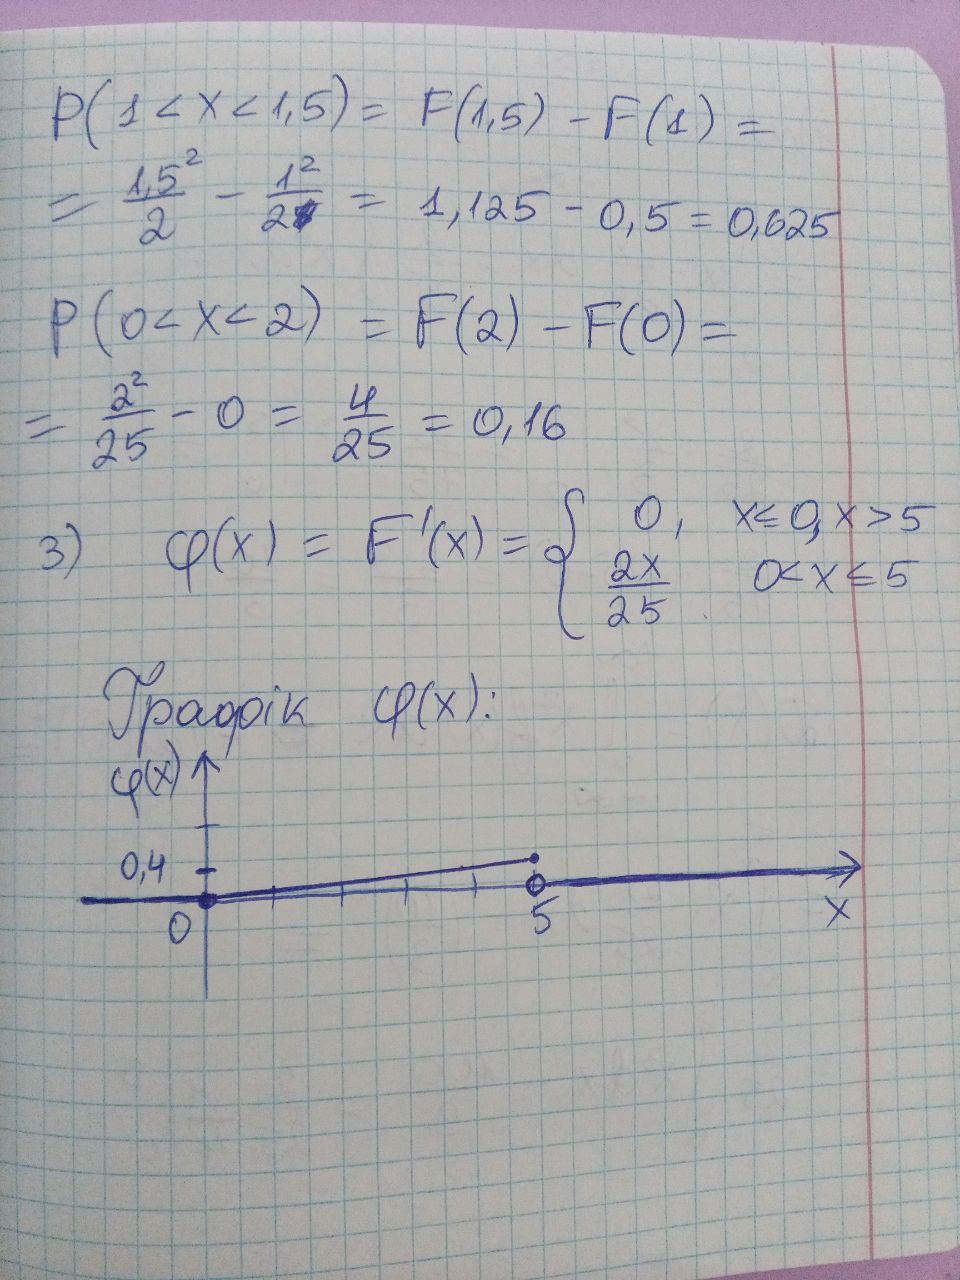 P(1 < X < 1,5) = F(1,5) - F(1) =
= 1,5²/2 - 1²/2 = 1,125 - 0,5 = 0,625
P(0 < X < 2) = F(2) - F(0) =
= 2²/25 - 0 = 4/25 = 0,16
3) φ(x) = F'(x) = { 0, x ≤ 0, x > 5
2x/25 0 < x ≤ 5
Графік φ(x):
φ(x)
0,4
0 5 x